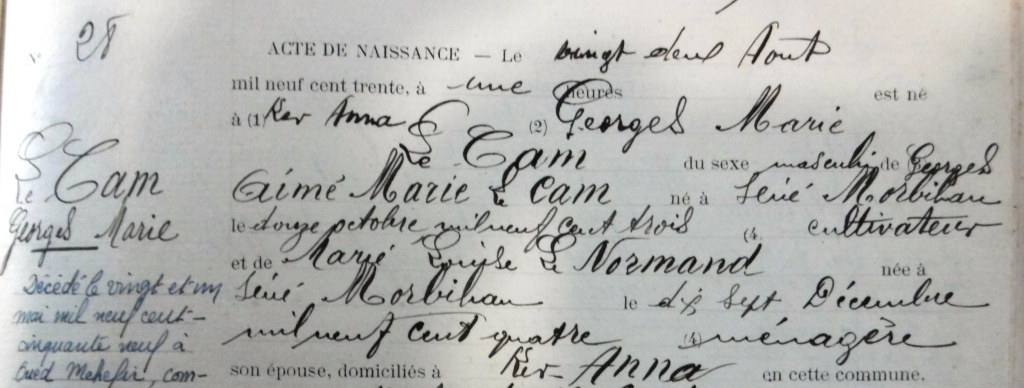 N° 28
ACTE DE NAISSANCE — Le vingt deux Aout
mil neuf cent trente, à une heures est né
à (1) Ker Anna (2) Georges Marie
Le Cam du sexe masculin de Georges
Aimé Marie Le Cam né à Séné Morbihan
le douze octobre mil neuf cent trois (4 cultivateur
et de Marie Louise Le Normand née à
Séné Morbihan le dix Sept Décembre
mil neuf cent quatre (4) ménagère
son épouse, domiciliés à Ker-Anna en cette commune.
Le Cam
Georges Marie
Décédé le vingt et un
mai mil neuf cent-
cinquante neuf à
Oued Mehefir, com-